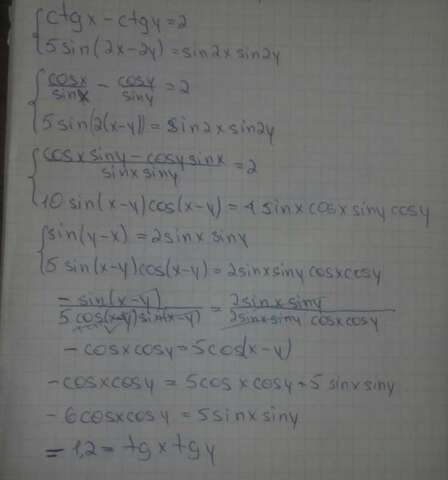 ctg x - ctg y = 2
5 sin (2x-2y) = sin2x sin2y
cosx/sinx - cosy/siny = 2
5 sin(2(x-y)) = sin2x sin2y
(cosx siny - cosy sinx)/(sinx siny) = 2
10 sin(x-y)cos(x-y) = 4 sinx cosx siny cosy
sin(y-x) = 2sinx siny
5 sin(x-y)cos(x-y) = 2sinx siny cosx cosy
(- sin(x-y))/(5 cos(x-y) sin(x-y)) = (2sinx siny)/(2sinx siny cosx cosy)
- cosx cosy = 5cos(x-y)
- cosx cosy = 5cosx cosy + 5 sinx siny
- 6cosx cosy = 5sinx siny
- 1,2 = tg x tg y